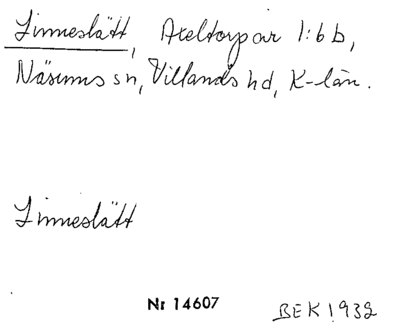 Linneslätt, Axeltorp ar 1:6 b,
Näsums sn, Villands hd, K-län.
Linneslätt
Nr 14607
BEK 1932